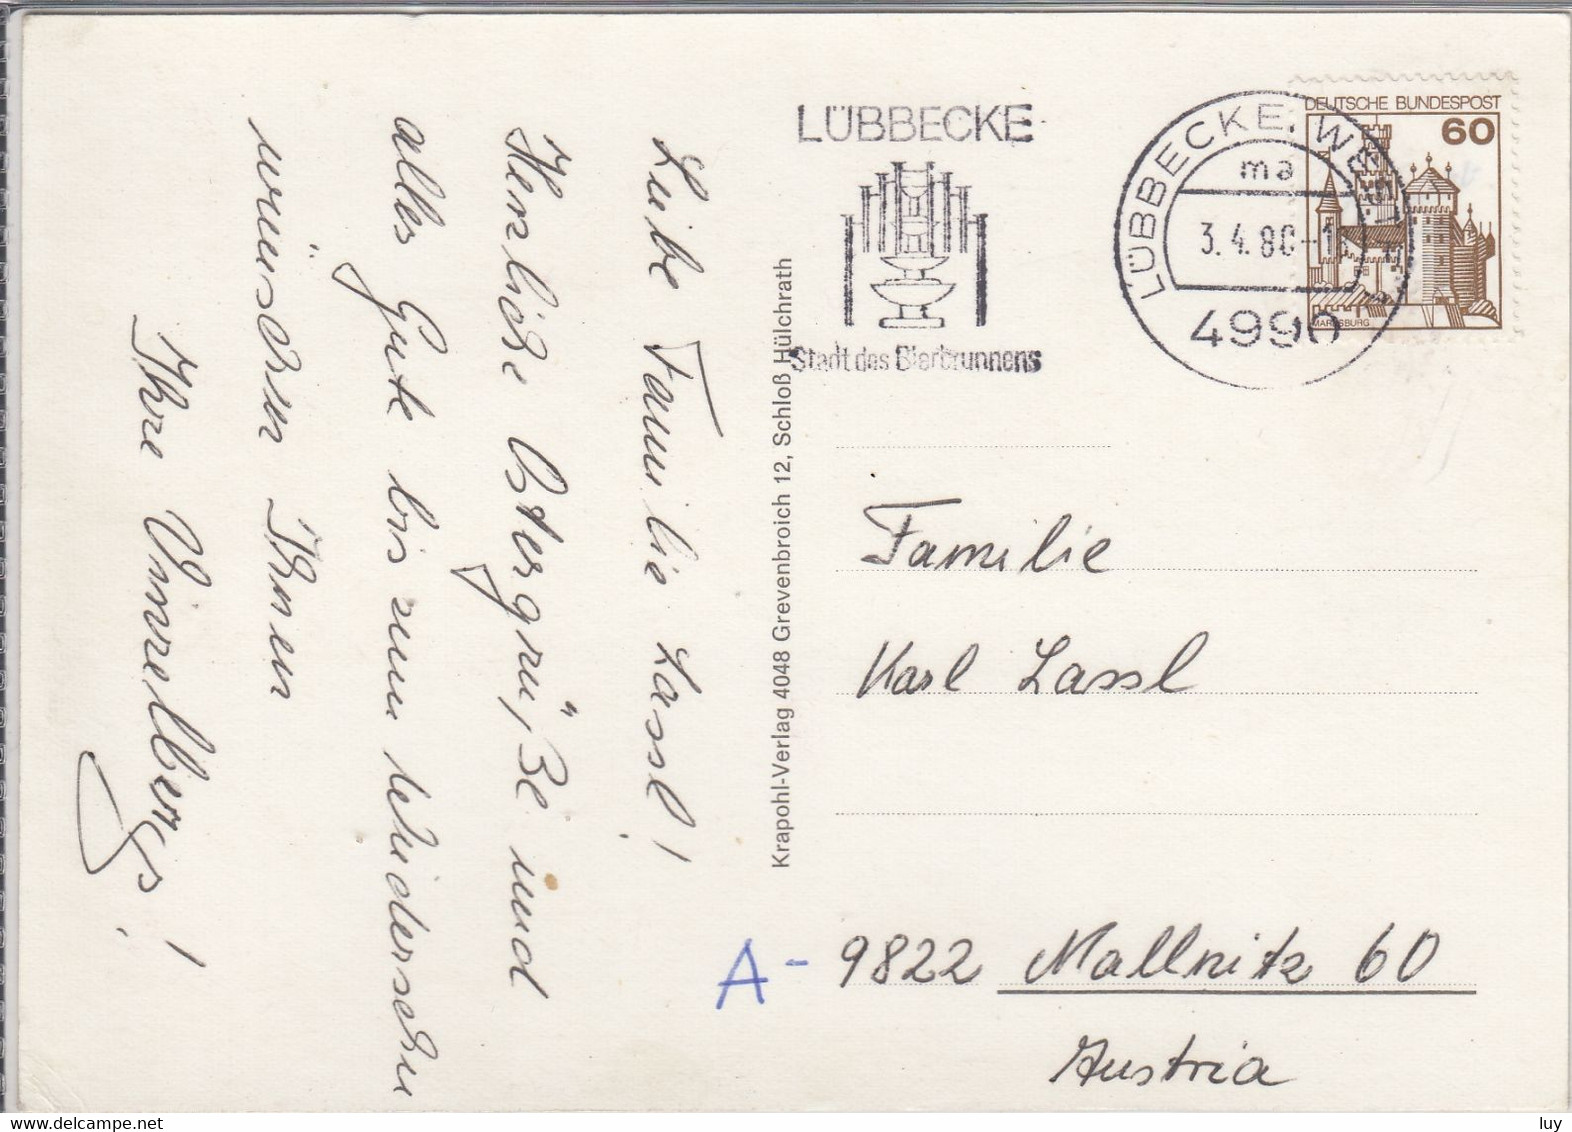 Liebe Familie Lassl!
Herzliche Ostergrüße und
alles Gute bis zum Wiedersehen
wünschen Ihnen
Ihre
Krapohl-Verlag 4048 Grevenbroich 12, Schloß Hülchrath
LÜBBECKE
Stadt des Bierbrunnens
LÜBBECKE, WESTF
ma
3.4.80-1
4990
DEUTSCHE BUNDESPOST
60
MARKSBURG
Familie
Karl Lassl
A- 9822 Mallnitz 60
Austria
www.delcampe.net
luy